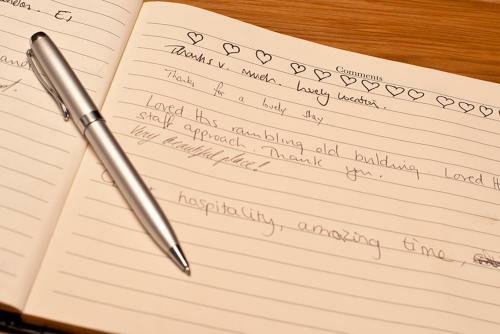 Comments
Thanks v. much. lovely location.
Thanks for a lovely stay
Loved this rambling old building. Loved
staff approach. Thank you.
Very beautiful place!
hospitality, amazing time,